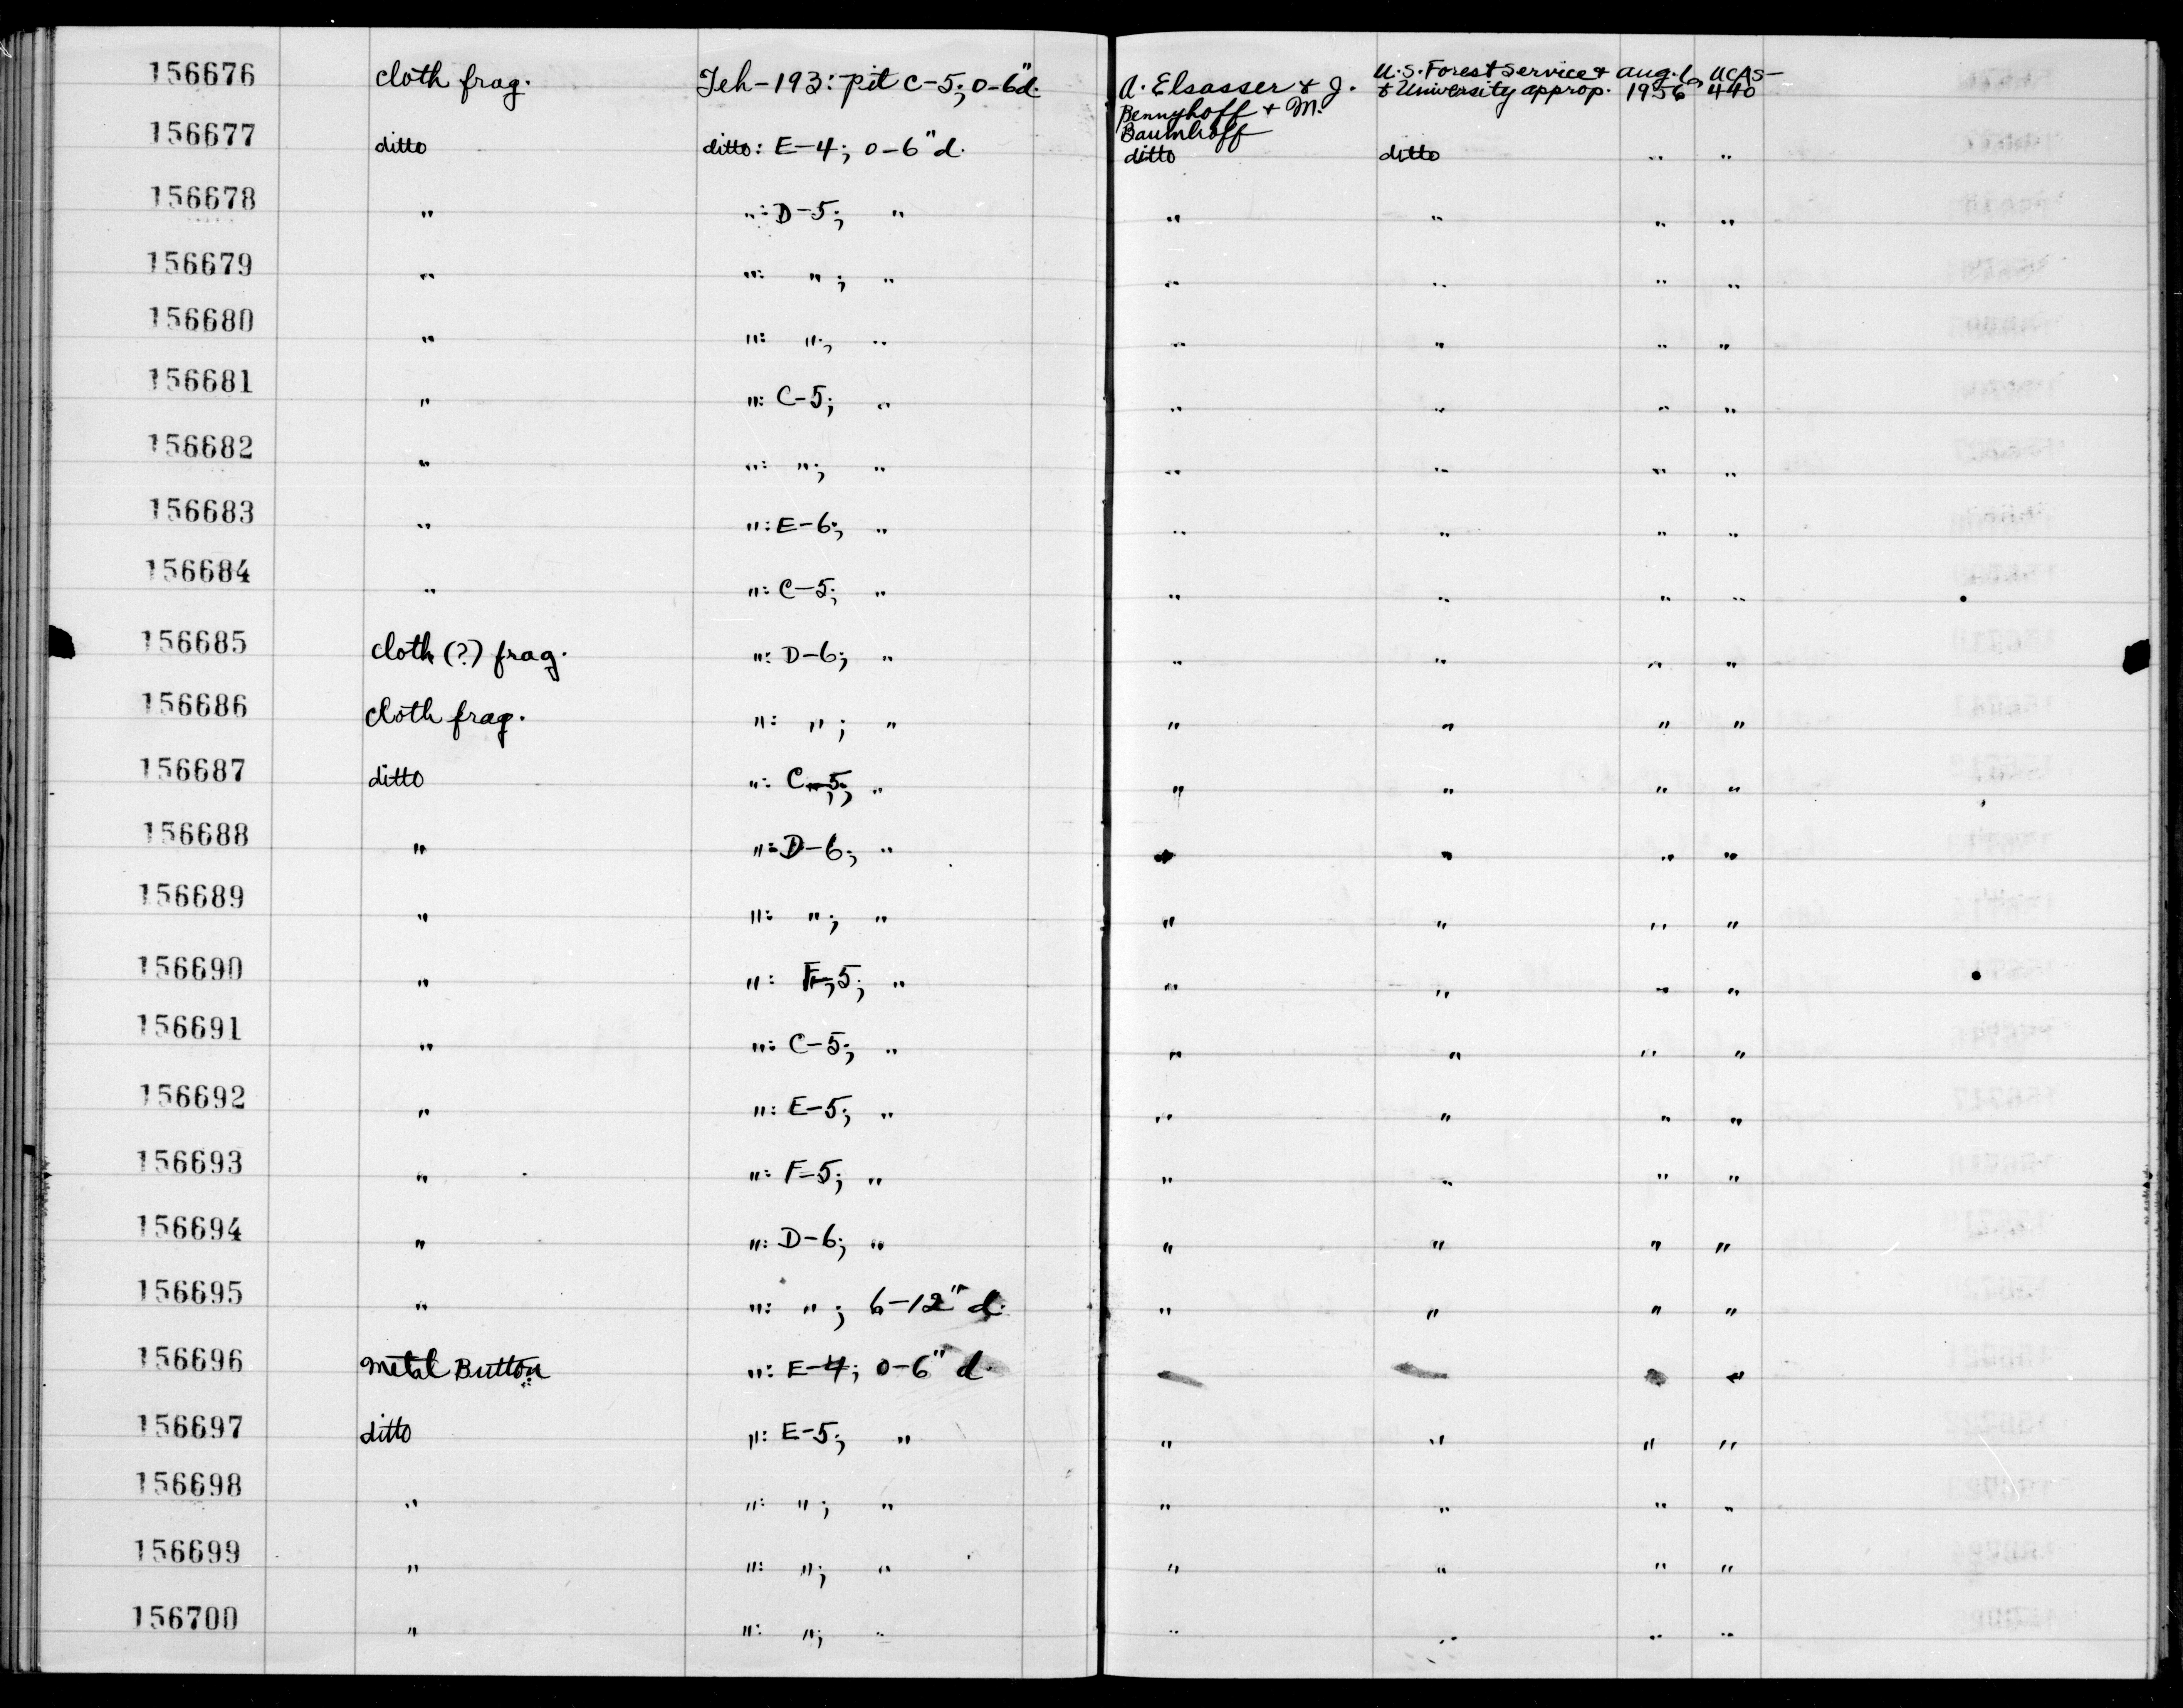 156676 cloth frag. Teh-193: pit C-5; 0-6"d. A. Elsasser & J. Bennyhoff & M. Baumhoff U.S. Forest Service & & University approp. Aug. 6, 1956 UCAS-440
156677 ditto ditto: E-4; 0-6"d. ditto ditto " "
156678 " ": D-5; " " " " "
156679 " ": "; " " " " "
156680 " ": "; " " " " "
156681 " ": C-5; " " " " "
156682 " ": "; " " " " "
156683 " ": E-6; " " " " "
156684 " ": C-5; " " " " "
156685 cloth (?) frag. ": D-6; " " " " "
156686 cloth frag. ": "; " " " " "
156687 ditto ": C-5; " " " " "
156688 " ": D-6; " " " " "
156689 " ": "; " " " " "
156690 " ": F-5; " " " " "
156691 " ": C-5; " " " " "
156692 " ": E-5; " " " " "
156693 " ": F-5; " " " " "
156694 " ": D-6; " " " " "
156695 " ": "; 6-12" d. " " " "
156696 Metal Button ": E-4; 0-6" d. " " " "
156697 ditto ": E-5; " " " " "
156698 " ": "; " " " " "
156699 " ": "; " " " " "
156700 " ": "; " " " " "